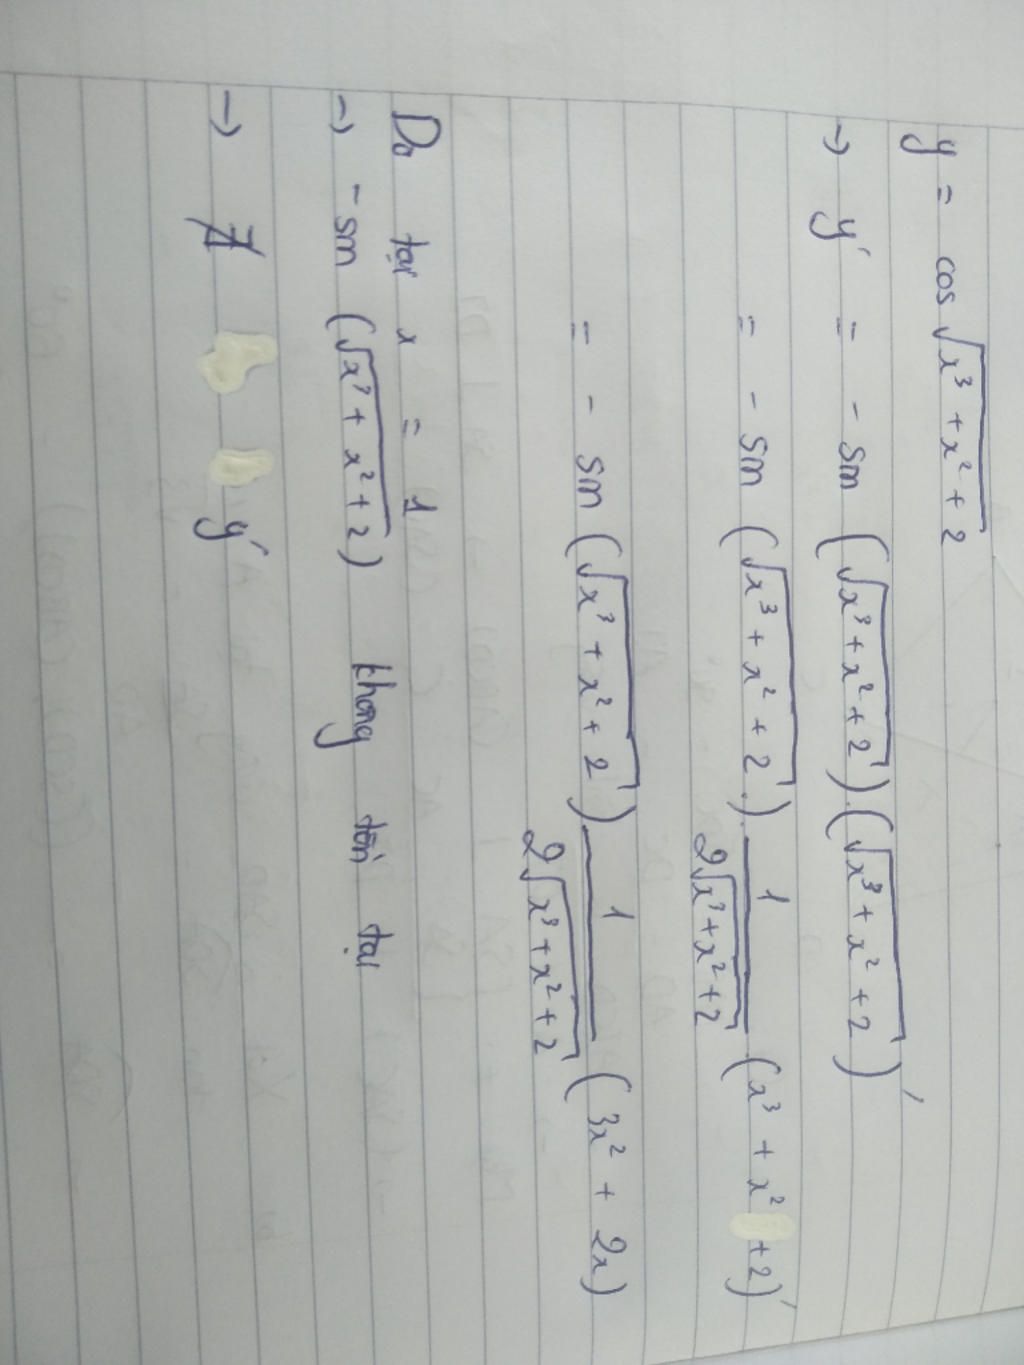 y = cos √(x³ + x² + 2)
→ y' = - sin (√(x³ + x² + 2)) . (√(x³ + x² + 2))'
= - sin (√(x³ + x² + 2)) . 1/(2√(x³ + x² + 2)) (x³ + x² + 2)'
= - sin (√(x³ + x² + 2)) . 1/(2√(x³ + x² + 2)) (3x² + 2x)
Do tại x = 1
→ - sin (√(x³ + x² + 2)) không tồn tại
→ ∄ y'